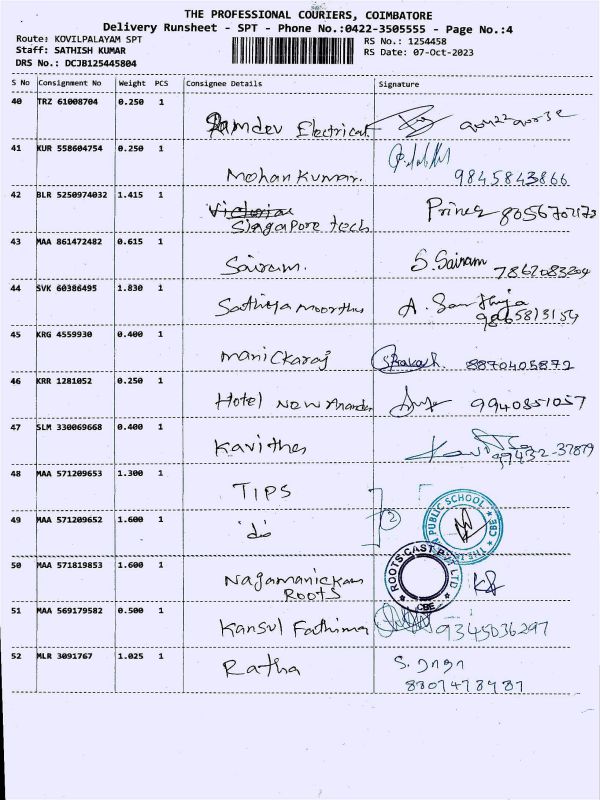 THE PROFESSIONAL COURIERS, COIMBATORE
Delivery Runsheet - SPT - Phone No.:0422-3505555 - Page No.:4
Route: KOVILPALAYAM SPT
Staff: SATHISH KUMAR
DRS No.: DCJB125445804
RS No.: 1254458
RS Date: 07-Oct-2023
S No Consignment No Weight PCS Consignee Details Signature
40 TRZ 61008704 0.250 1
Ramdev Electrical
41 KUR 558604754 0.250 1
Mohan Kumar. 9845843866
42 BLR 5250974032 1.415 1
Singapore tech Prince 8056702173
43 MAA 861472482 0.615 1
Sairam. S. Sairam 7867083204
44 SVK 60386495 1.830 1
Sathiya moorthy A. Santhiya
9865813154
45 KRG 4559930 0.400 1
Manickaraj Prakash. 8870405872
46 KRR 1281052 0.250 1
Hotel New Anandas 9940851057
47 SLM 330069668 0.400 1
Kavitha Kavitha 99432-37879
48 MAA 571209653 1.300 1
TIPS
49 MAA 571209652 1.600 1
do
PUBLIC SCHOOL CBE THE
50 MAA 571819853 1.600 1
Nagamanickam
ROOTS
ROOTS CAST PVT LTD CBE
51 MAA 569179582 0.500 1
Kansul Fathima 9345036297
52 MLR 3091767 1.025 1
Ratha S. ராதா
8807478487